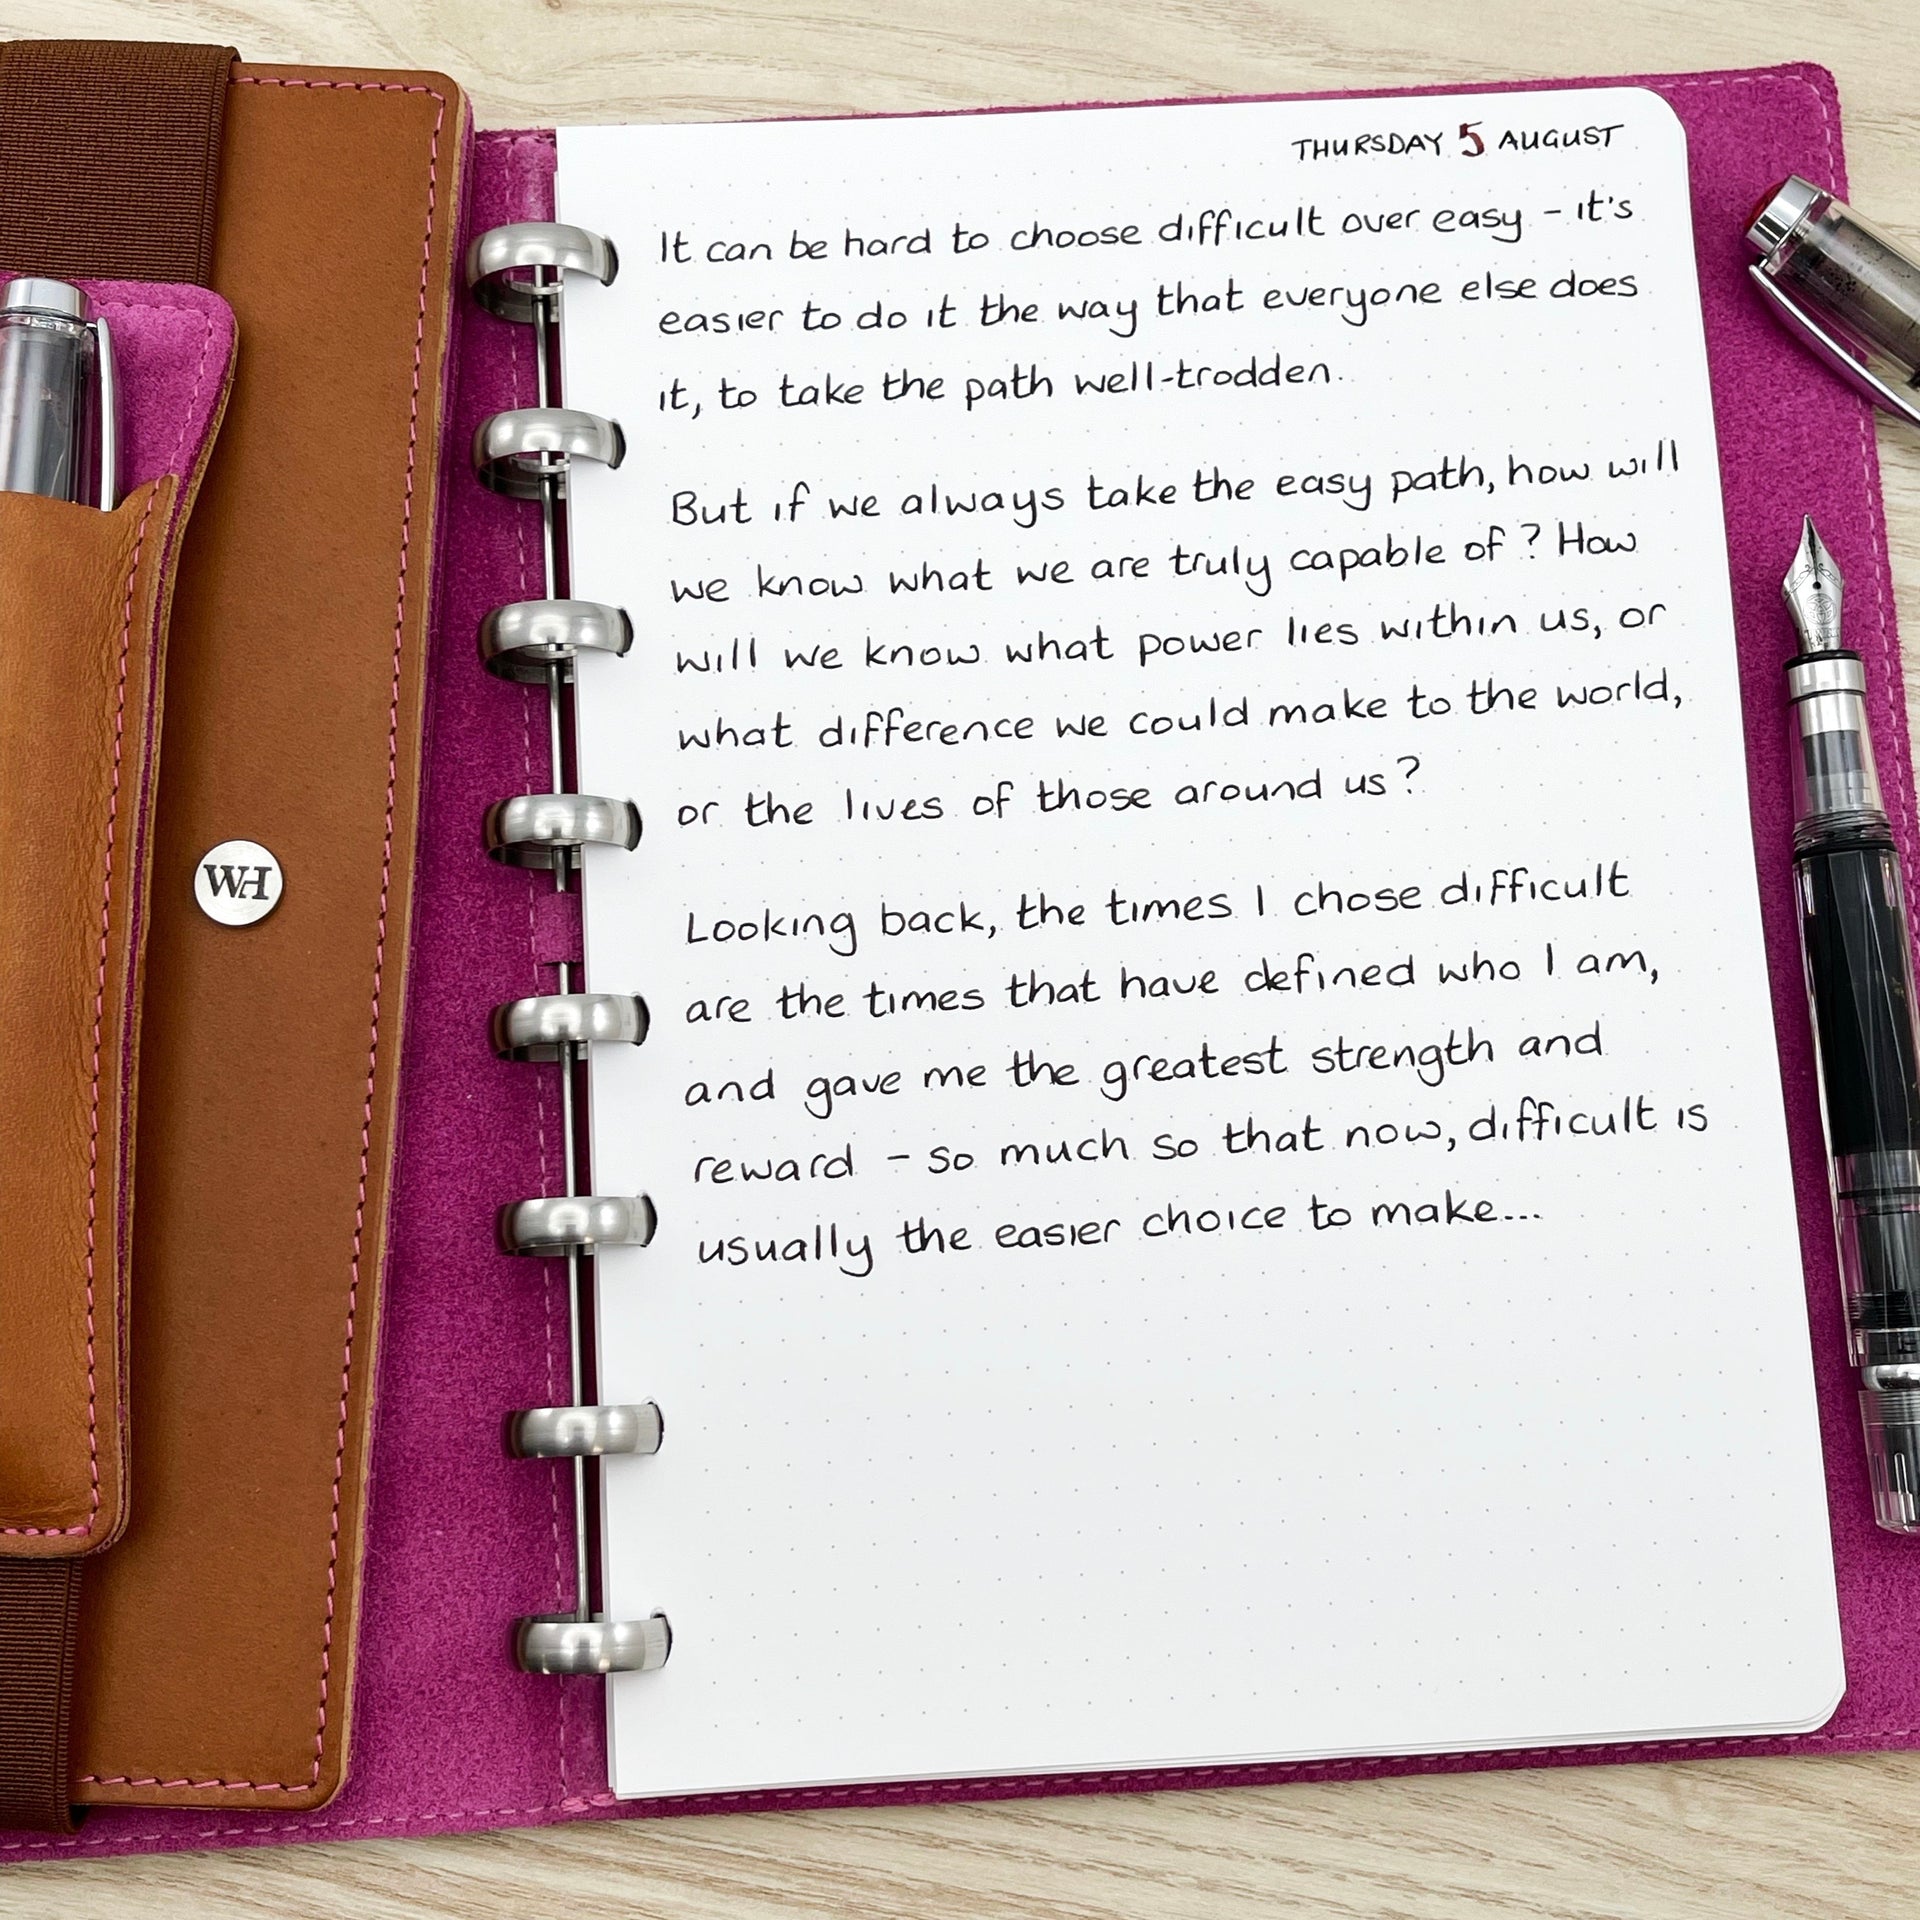 THURSDAY 5 AUGUST
It can be hard to choose difficult over easy - it's
easier to do it the way that everyone else does
it, to take the path well-trodden.
But if we always take the easy path, how will
we know what we are truly capable of? How
will we know what power lies within us, or
what difference we could make to the world,
or the lives of those around us?
Looking back, the times I chose difficult
are the times that have defined who I am,
and gave me the greatest strength and
reward - so much so that now, difficult is
usually the easier choice to make...
WH